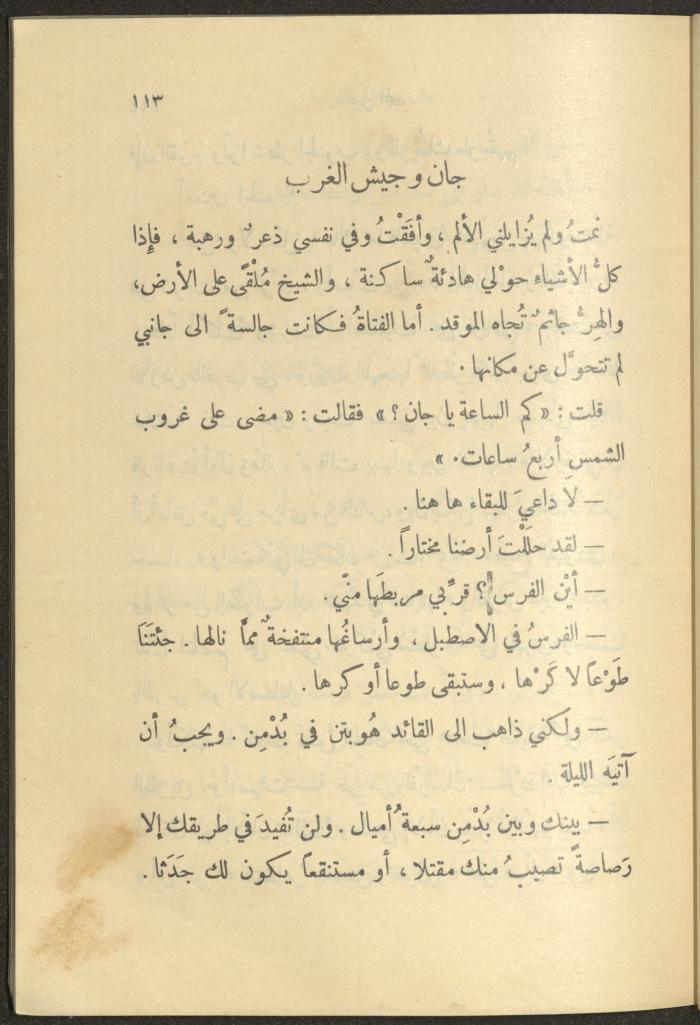 ١١٣
جان وجيش الغرب
نمتُ ولم يُزايلني الألم ، وأفَقْتُ وفي نفسي ذعرٌ ورهبة ، فإِذا
كلُّ الأشياءِ حوْلي هادئةٌ ساكنة ، والشيخ مُلْقًى على الأرض،
والهِرُّ جاثمٌ تُجاه الموقد . أما الفتاةُ فكانت جالسةً الى جانبي
لم تتحوَّل عن مكانها .
قلت : « كم الساعة يا جان ؟ » فقالت : « مضى على غروب
الشمسِ أربعُ ساعات. »
— لا داعيَ للبقاء ها هنا .
— لقد حلَلْتَ أرضنا مختاراً .
— أيْن الفرس؟ قرِّبي مربطَها منّي .
— الفرسُ في الاصطبل ، وأرساغُها منتفخةٌ ممّا نالها . جئتَنَا
طَوْعاً لا كَرْها ، وستبقى طوعا أو كرها .
— ولكني ذاهب الى القائد هُوبتن في بُدْمِن . ويجبُ أن
آتيَه الليلة .
— بينك وبين بُدْمِن سبعةُ أميال . ولن تُفيدَ في طريقك إلا
رَصاصةً تصيبُ منك مقتلا ، أو مستنقعاً يكون لك جَدَثا .